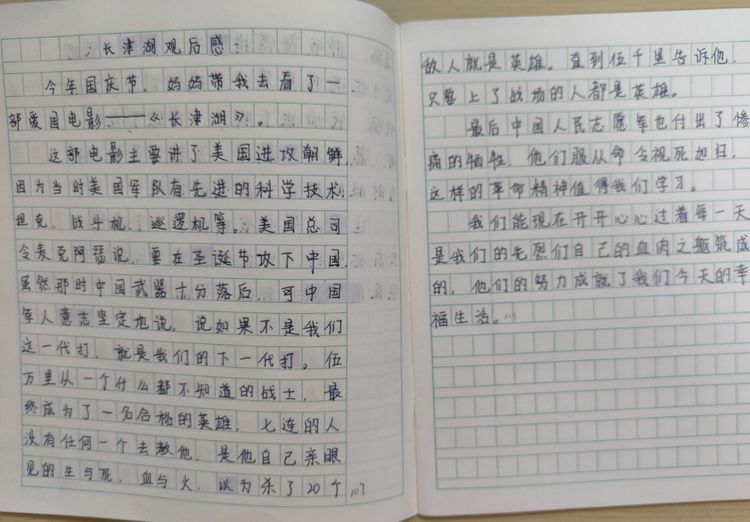 长津湖观后感
今年国庆节，妈妈带我去看了一
部爱国电影——《长津湖》。
这部电影主要讲了美国进攻朝鲜，
因为当时美国军队有先进的科学技术，
坦克、战斗机、巡逻机等。美国总司
令麦克阿瑟说，要在圣诞节攻下中国，
虽然那时中国武器十分落后，可中国
军人意志坚定地说，说如果不是我们
这一代打，就是我们的下一代打。伍
万里从一个什么都不知道的战士，最
终成为了一名合格的英雄，七连的人
没有任何一个去教他，是他自己亲眼
见的生与死，血与火，以为杀了20个
敌人就是英雄。直到伍千里告诉他，
只要上了战场的人都是英雄。
最后中国人民志愿军也付出了惨
痛的牺牲，他们服从命令视死如归，
这样的革命精神值得我们学习。
我们能现在开开心心过着每一天，
是我们的先烈们自己的血肉之躯筑成
的，他们的努力成就了我们今天的幸
福生活。